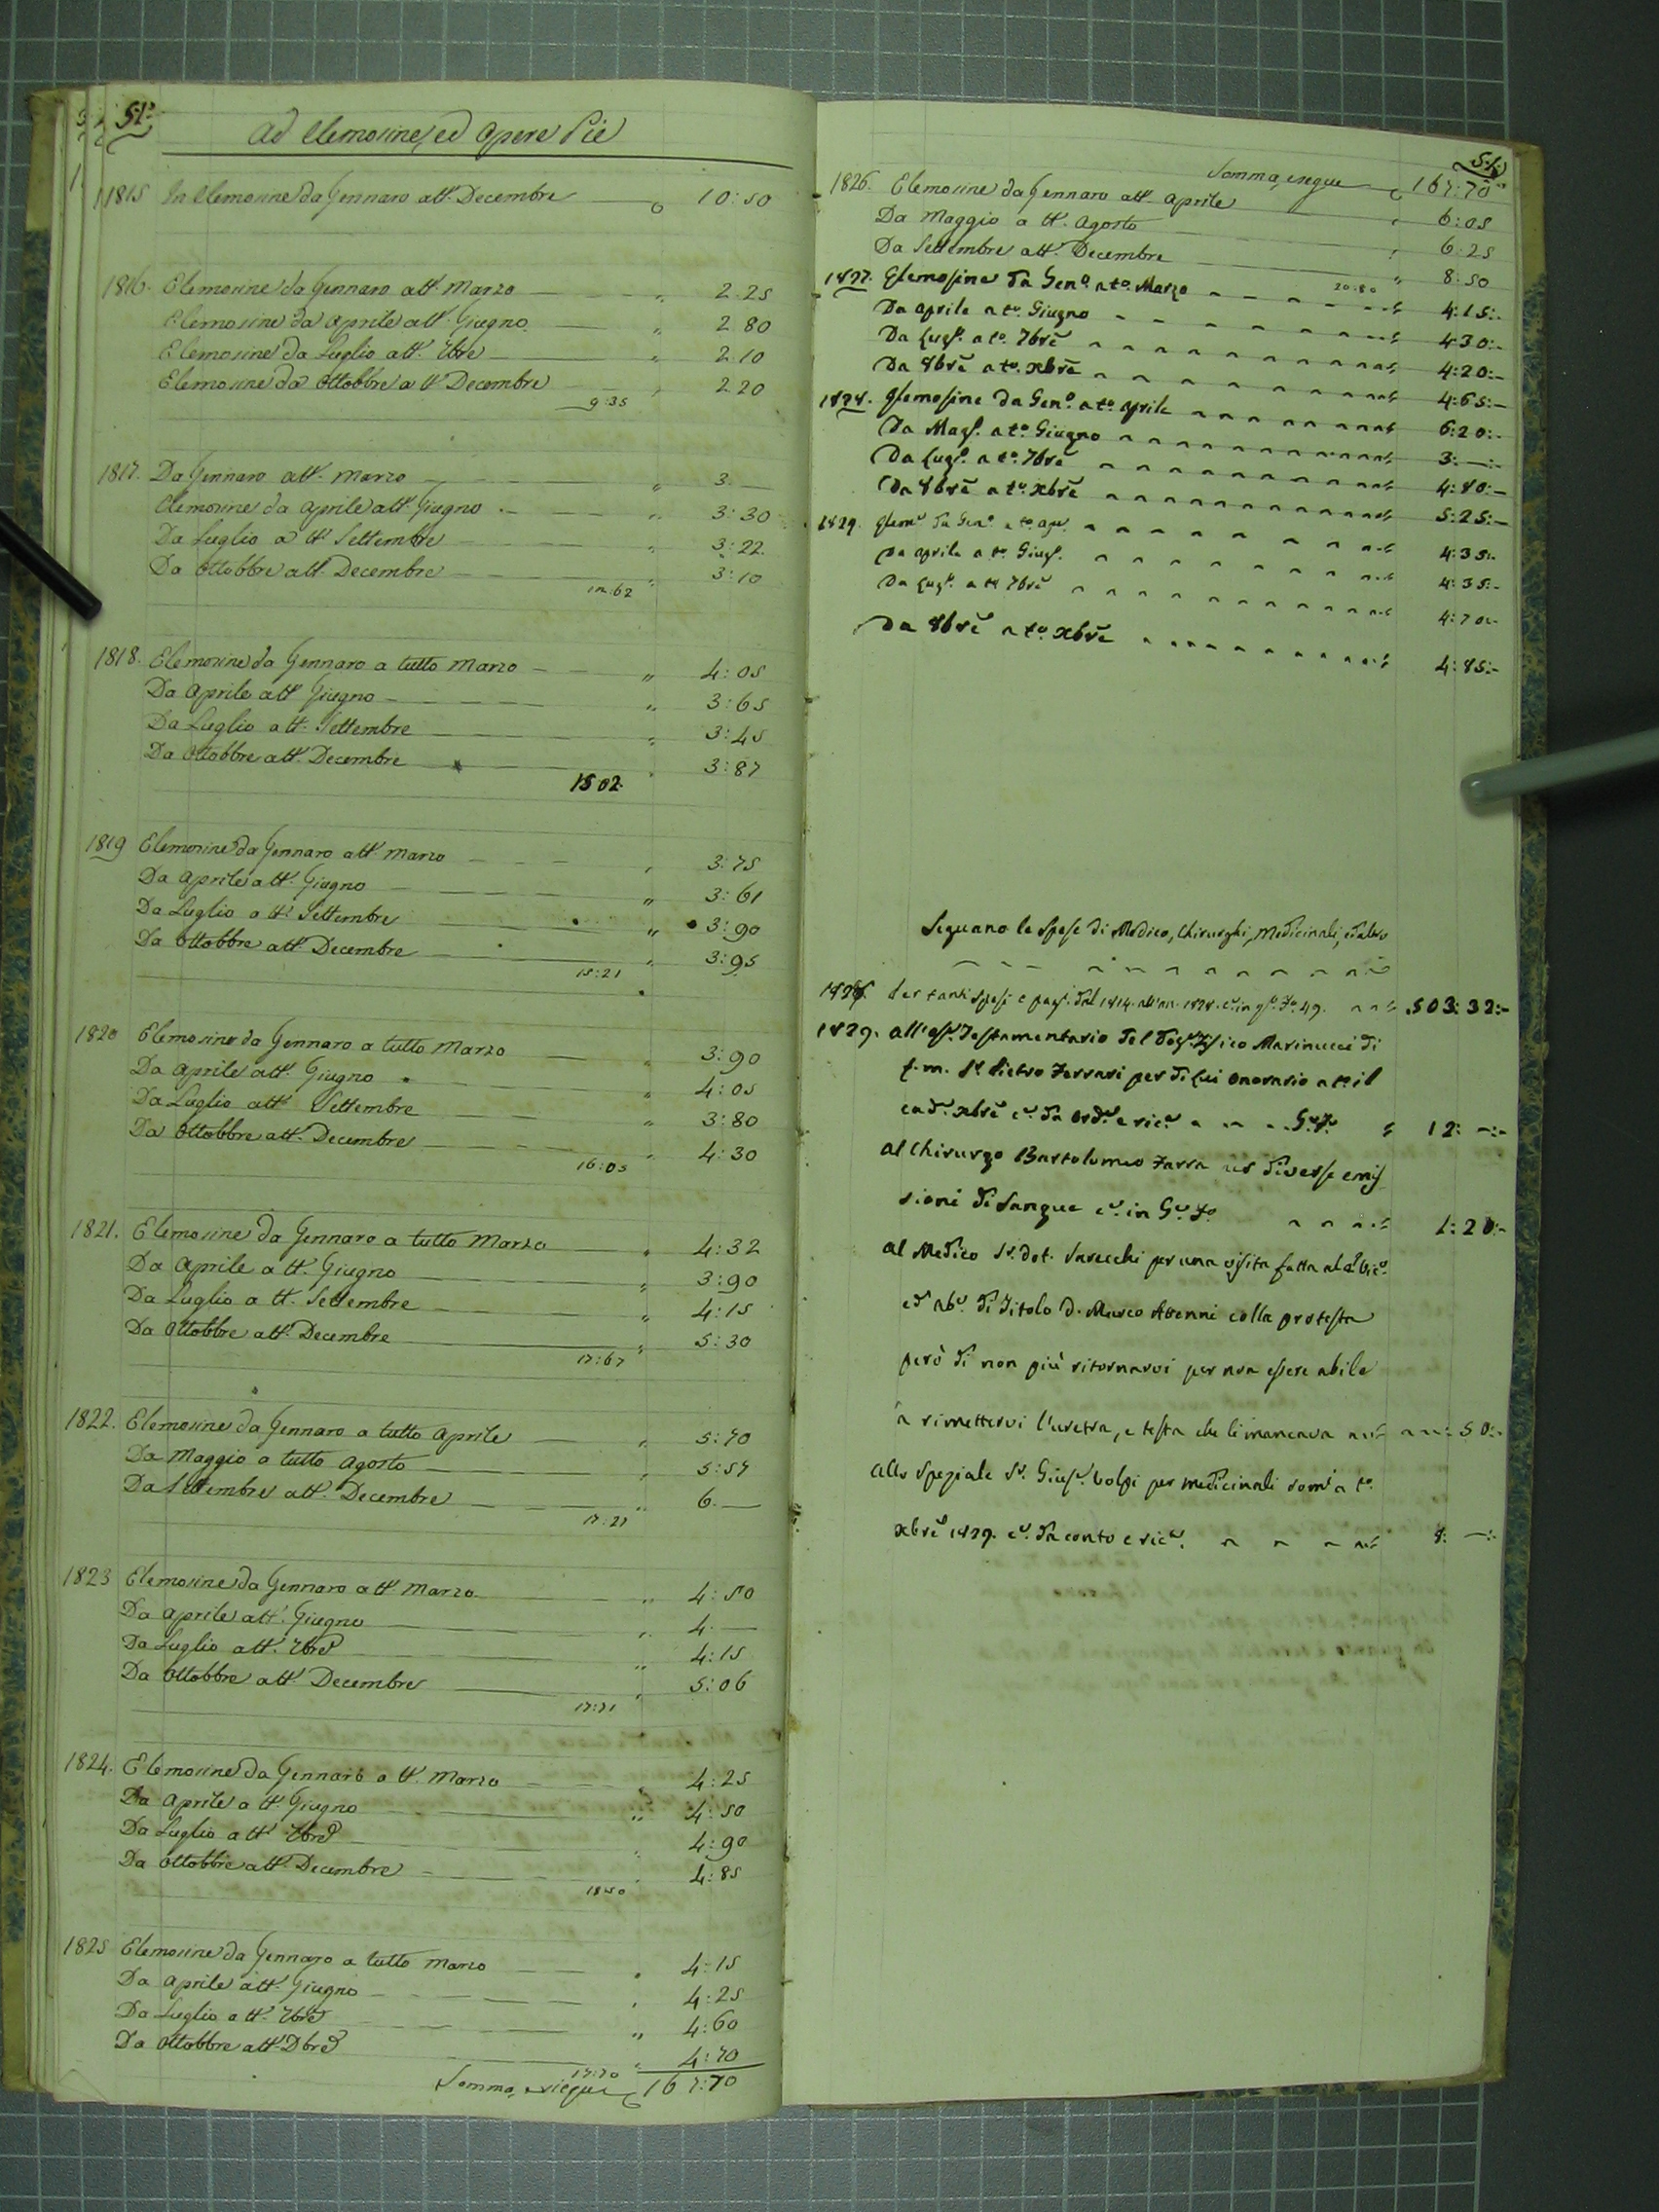 51.
Ad Elemosine, ed Opere Pie
1815 In Elemosine da Gennaro att. Decembre 10:50
1816. Elemosine da Gennaro att. Marzo " 2:25
Elemosine da Aprile att. Giugno " 2:80
Elemosine da Luglio att. 7bre " 2:10
Elemosine da Ottobbre a tt. Decembre " 2:20
9:35
1817. Da Gennaro att. Marzo " 3. —
Elemosine da Aprile att. Giugno " 3:30
Da Luglio a tt. Settembre " 3:22
Da Ottobbre att. Decembre " 3:10
12:62
1818. Elemosine da Gennaro a tutto Marzo " 4:05
Da Aprile att. Giugno " 3:65
Da Luglio att. Settembre " 3:45
Da Ottobbre att. Decembre " 3:87
15 02.
1819 Elemosine da Gennaro att. Marzo " 3:75
Da Aprile att. Giugno " 3:61
Da Luglio a tt. Settembre " 3:90
Da Ottobbre att. Decembre " 3:95
15:21
1820 Elemosine da Gennaro a tutto Marzo " 3:90
Da Aprile att. Giugno " 4:05
Da Luglio att. Settembre " 3:80
Da Ottobbre att. Decembre " 4:30
16:05
1821. Elemosine da Gennaro a tutto Marzo " 4:32
Da Aprile a tt. Giugno " 3:90
Da Luglio a tt. Settembre " 4:15
Da Ottobbre att. Decembre " 5:30
17:67
1822. Elemosine da Gennaro a tutto Aprile " 5:70
Da Maggio a tutto Agosto " 5:57
Da Settembre att. Decembre " 6. —
17:27
1823 Elemosine da Gennaro a tt. Marzo " 4:50
Da Aprile att. Giugno " 4. —
Da Luglio att. 7bre " 4:15
Da Ottobbre att. Decembre " 5:06
17:71
1824. Elemosine da Gennaro a tt. Marzo " 4:25
Da Aprile a tt. Giugno " 4:50
Da Luglio a tt. 7bre " 4:90
Da Ottobbre att. Decembre " 4:85
18 50
1825 Elemosine da Gennaro a tutto Marzo " 4:15
Da Aprile att. Giugno " 4:25
Da Luglio a tt. 7bre " 4:60
Da Ottobbre att. Dbre " 4:70
17:70
Somma, e siegue 167:70
51.
Somma, e segue 167:70
1826. Elemosine da Gennaro att. Aprile " 6:05
Da Maggio a tt. Agosto " 6:25
Da Settembre att. Decembre " 8:50
20:80
1827. Elemosine da Gen.o a to. Marzo " 4:15:-
Da Aprile a to. Giugno " 4:30:-
Da Lug.o a to. 7bre " 4:20:-
Da 8bre a to. xbre " 4:65:-
1828. Elemosine da Gen.o a to. Aprile " 6:20:-
Da Mag.o a to. Giugno " 3:—:-
Da Lug.o a to. 7bre " 4:80:-
Da 8bre a to. xbre " 5:25:-
1829. Elem.e da Gen.o a to. " 4:35:-
Da Aprile a to. Giug.o " 4:35:-
Da Lug.o a to 7bre " 4:70:-
Da 8bre a to. xbre " 4:85:-
Seguano le Spese di Medico, Chirurghi, Medicinali, ed altro
tanti spesi e pag.i dal 1814. all'an. 1828. c.e in q.o Fo. 49. 503:32:-
1829. All' Testamentario del Marinucci di
f.m. Sr. Pietro Ferrari per di lui onorario a to. il
cad.e xbre c.e da ord.e e ric.a " 12: -:-
Al Chirurgo Bartolomeo Farra per diverse emis
sioni di Sangue c.e in " 1:20:-
Al Medico Sr. Dot. Savecchi per una visita fatta al
ed di Titolo D. Marco colla protesta
però di non più ritornarvi per non essere abile
a rimettervi l'uretra, e testa che li mancava :50:-
Allo Speziale Sr. Gius.e Volpi per medicinali som.i a to.
xbre 1829. c.e da conto e ric.a " 8: —:-